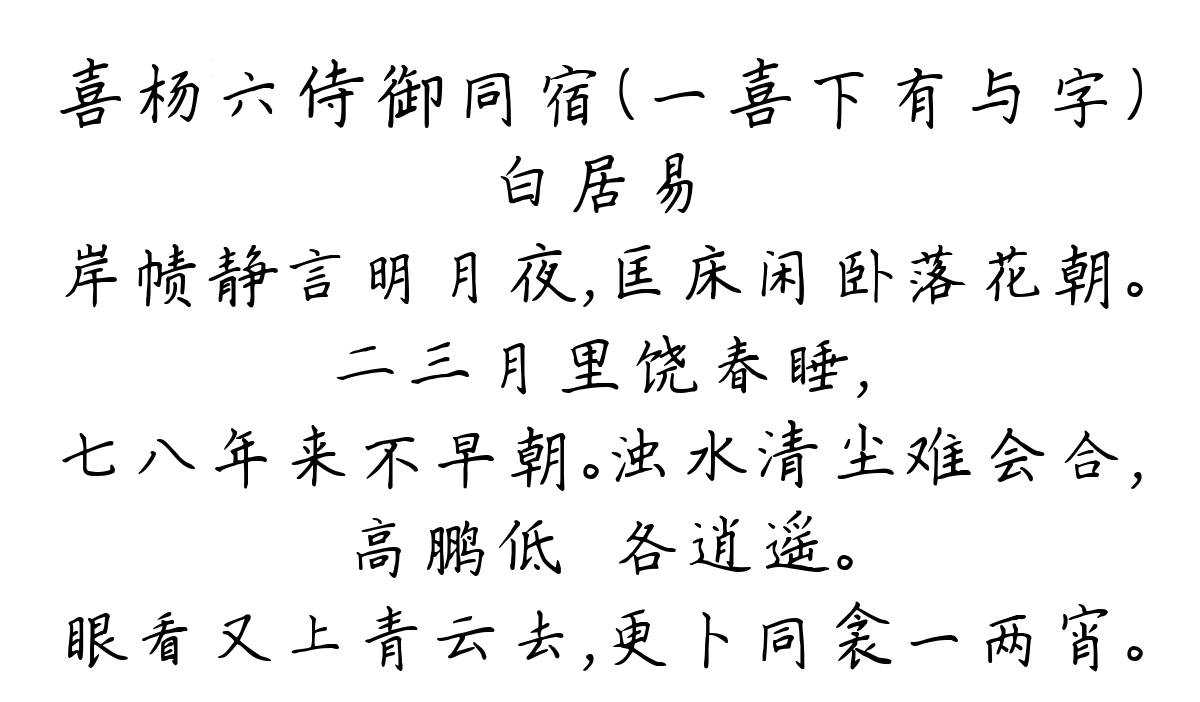 喜杨六侍御同宿(一喜下有与字)
白居易
岸帻静言明月夜,匡床闲卧落花朝。
二三月里饶春睡,
七八年来不早朝。浊水清尘难会合,
高鹏低 各逍遥。
眼看又上青云去,更卜同衾一两宵。